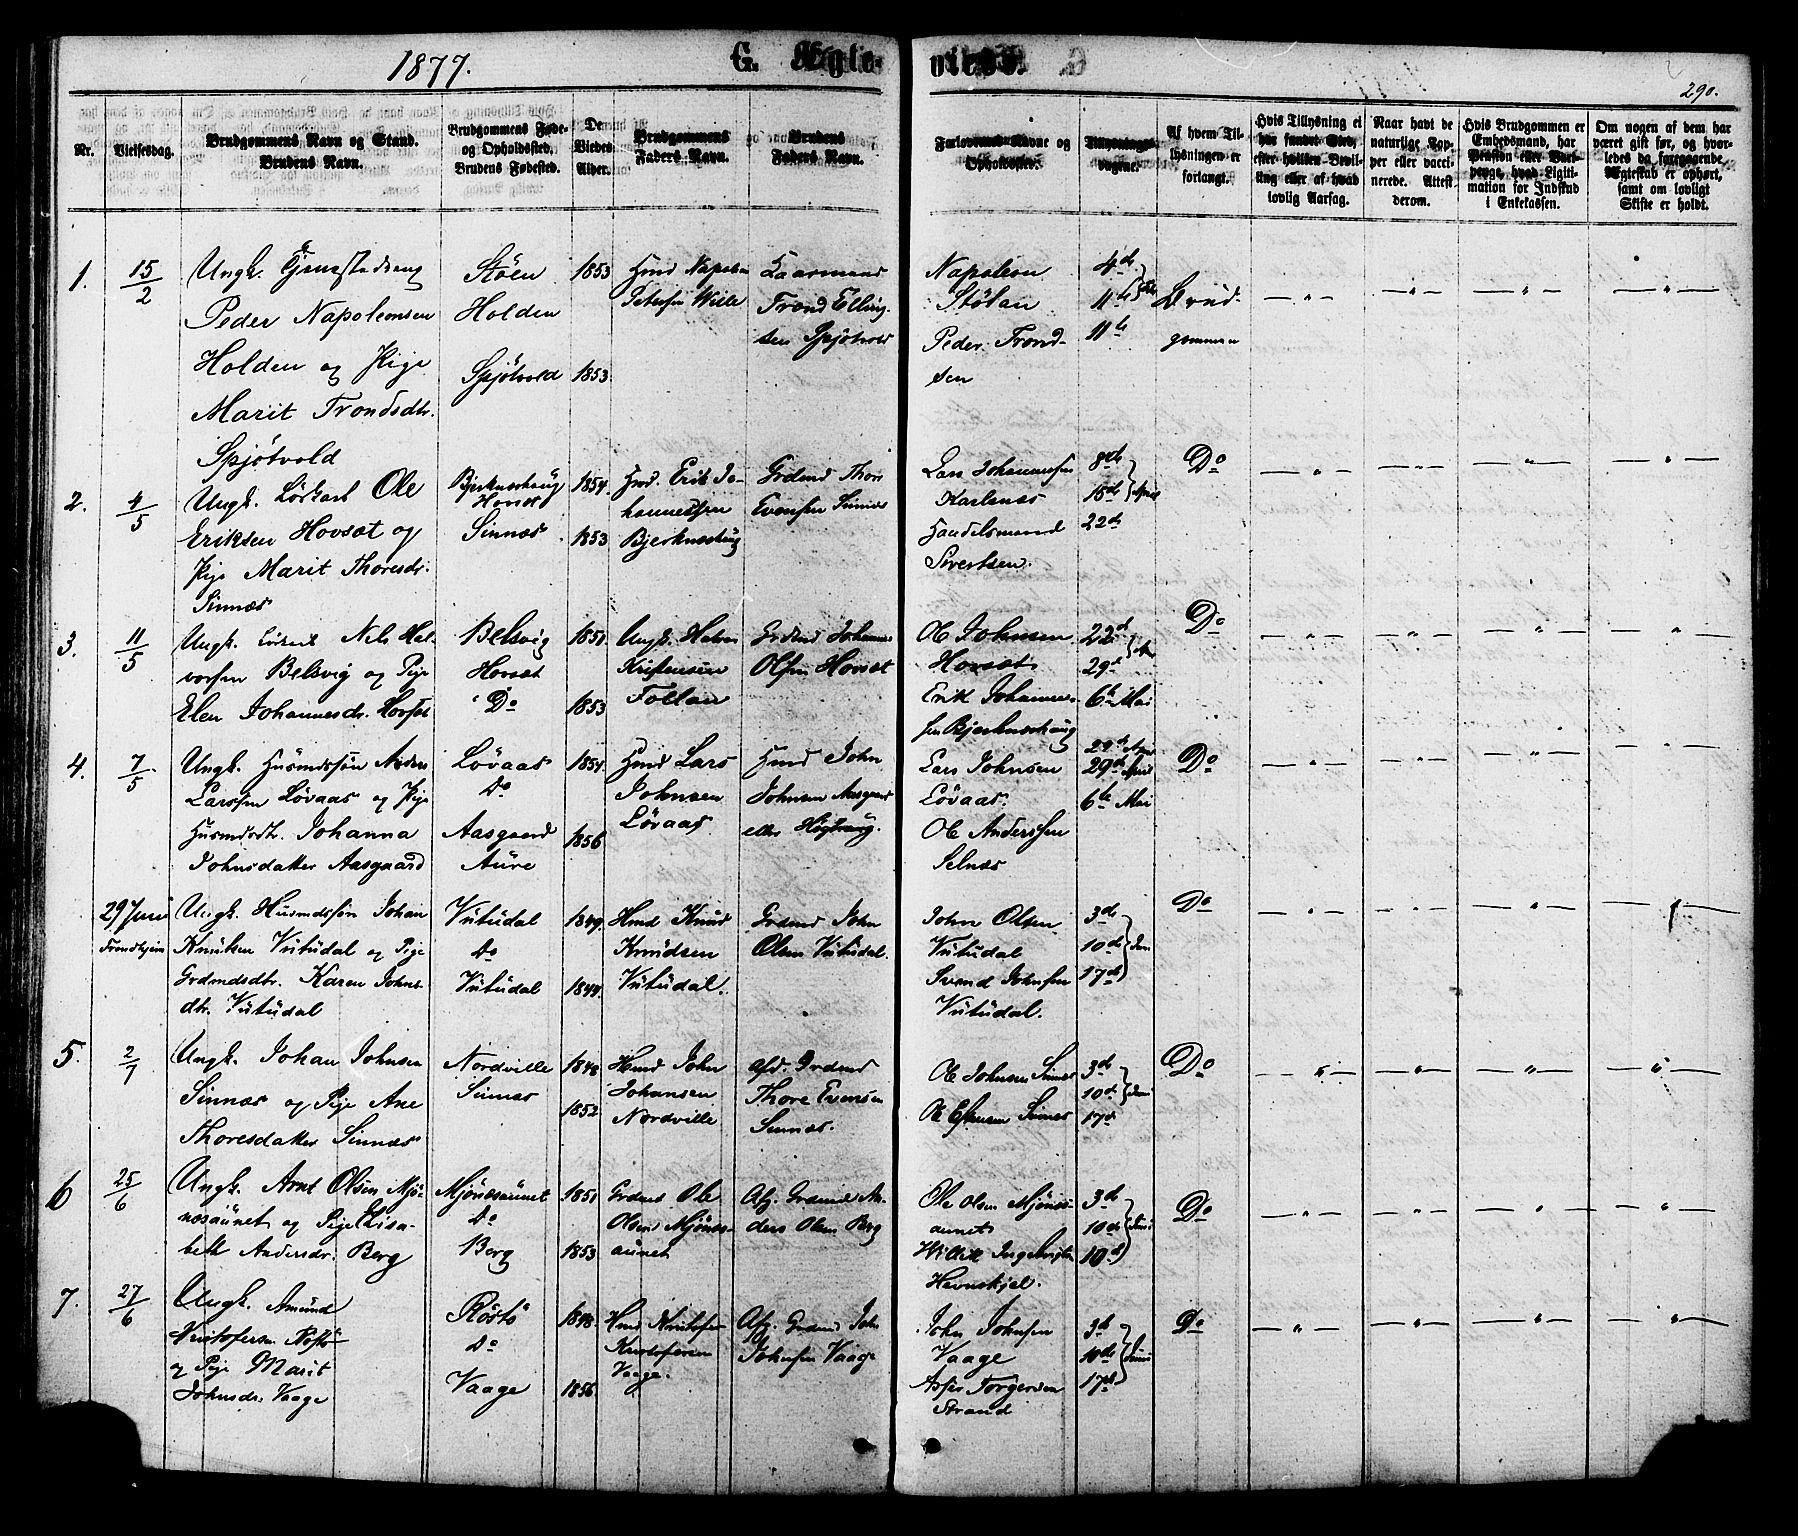 1877.
G. Ægte-
viede.
290.
Nr.
Vielsesdag.
Brudgommens Navn og Stand.
Brudens Navn.
Brudgommens Føde-
og Opholdssted.
Brudens Fødested.
De
Viedes
Alder.
Brudgommens
Faders Navn.
Brudens
Faders Navn.
Forlovernes Navne og
Opholdssted.
Tillysnings-
dagene.
Af hvem Til-
lysningen er
forlangt.
Hvis Tillysning ei
har fundet Sted,
efter hvilken Bevil-
ling eller af hvad
lovlig Aarsag.
Naar havt de
naturlige Kop-
per eller vacci-
nerede. Attest
derom.
Hvis Brudgommen er
Embedsmand, har
Pension eller Vart-
penge, hvad Ligiti-
mation for Indskud
i Enkekassen.
Om nogen af dem har
været gift før, og hvor-
ledes da foregaaende
Ægteskab er ophørt,
samt om lovligt
Skifte er holdt.
1.
15/2
Ungk.
Peder Napoleonsen
Holden og Pige
Marit Trondsdtr.
Spjøtvold
Støen
Holden
Spjøtvold
1853
1853
Hmd Napoleon
Petersen Wille
Gaarmand
Trond Elling-
sen Spjøtvold
Napoleon
Stølan
Peder Trond-
sen
4de
11te
11te
Brud-
gommen
2.
4/5
Ungk. Ole
Eriksen Hovsæt og
Pige Marit Thoresdr.
Sinnæs
Bjerkneshaug
Hovsæt
Sinnæs
1854
1853
Hmd. Erik Jo-
hannessen
Bjerkneshaug
Grdmd Thore
Evensen Sinnæs
Lars Johannesen
Karlsnæs
Handelsmand
Sivertsen.
8de
15de
22de
April
Do
3.
11/5
Ungk. Nels Hal-
vorsen Belsvig og Pige
Elen Johannesdr. Hovsæt
Belsvig
Hovsæt
Do
1851
1853
Ungk. Halvor
Kristensen
Follan
Grdmd Johannes
Olsen Hovsæt
Ole Johnsen
Hovsæt
Erik Johannes-
sen Bjerkneshaug
22de
29de
6te Mai
Do
4.
7/5
Ungk. Husmdssøn Anders
Larssen Løvaas og Pige
Husmdsdtr. Johanna
Johnsdatter Aasgaard
Løvaas
Do
Aasgaard
Aure
1854
1856
Hmd Lars
Johnsen
Løvaas
Hmd John
Johnsen Aasgaard
eller
Lars Johnsen
Løvaas.
Ole Anderssen
Selnæs
22de April
29de April
6te Mai
Do
29 Juni
Trondhjem
Ungk. Husmdssøn Johan
Knutsen Vutudal og Pige
Grdmdsdtr. Karen Johns-
dtr. Vutudal
Vutudal
Do
Vutudal
1849
1844
Hmd Knud
Knudsen
Vutudal.
Grdmd John
Olsen Vutudal.
John Olsen
Vutudal
Svend Johnsen
Vutudal.
3de
10de
17de
Juni
Do
5.
2/7
Ungk. Johan Johnsen
Sinnæs og Pige Ane
Thoresdatter Sinnæs
Nordville
Sinnæs
1848
1852
Hmd John
Johansen
Nordville
Afd. Grdmd
Thore Evensen
Sinnæs.
Ole Johnsen Sinnæs
Ole Estensen Sinnæs
3de
10de
17de
Juni
Do
6
25/6
Ungk. Arnt Olsen Mjø-
næsaunet og Pige Lisa-
beth Andersdr. Berg
Mjønæsaunet
Do
Berg
1851
1853
Grdmd Ole
Olsen Mjønæs-
aunet
Afg. Grdmd An-
ders Olsen Berg
Ole Olsen Mjønæs-
aunet
Willik Ingebrigtsen
Hevnskjel.
3de
10de
10de
Juni
Do
7.
27/6
Ungk. Amund
Kristofersen Røstø
og Pige Marit
Johnsdr. Vaage
Røstø
Do
Vaage
1848
1856
Hmd Kristofer
Kristofersen
Vaage.
Afg. Grdmd John
Johnsen Vaage
John Johnsen
Vaage
Torgersen
Strand
3de
10de
17de
Juni
Do